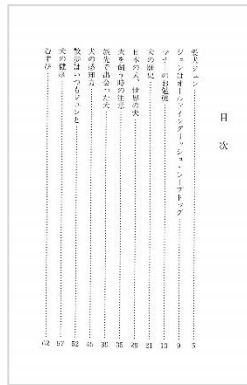 目次
愛犬ジュン 5
ジュンはオールドイングリッシュ・シープドッグ 9
マナーのお勉強 13
犬の歴史 21
日本の犬、世界の犬 26
犬を飼う時の注意 35
旅先で出会った犬 39
犬の感知力 45
散歩はいつもジュンと 52
犬の健康 57
むすび 62